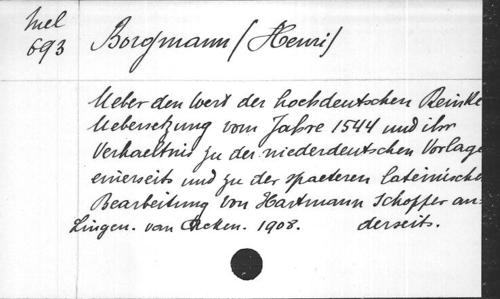 Mel
693
Borgmann (Henri)
Ueber den Wert der hochdeutschen Reinke
Uebersetzung vom Jahre 1544 und ihr
Verhaeltnis zu der niederdeutschen Vorlage
einerseits und zu der spaeteren lateinische
Bearbeitung von Hartmann Schopper an-
Lingen. van Acken. 1908. derseits.